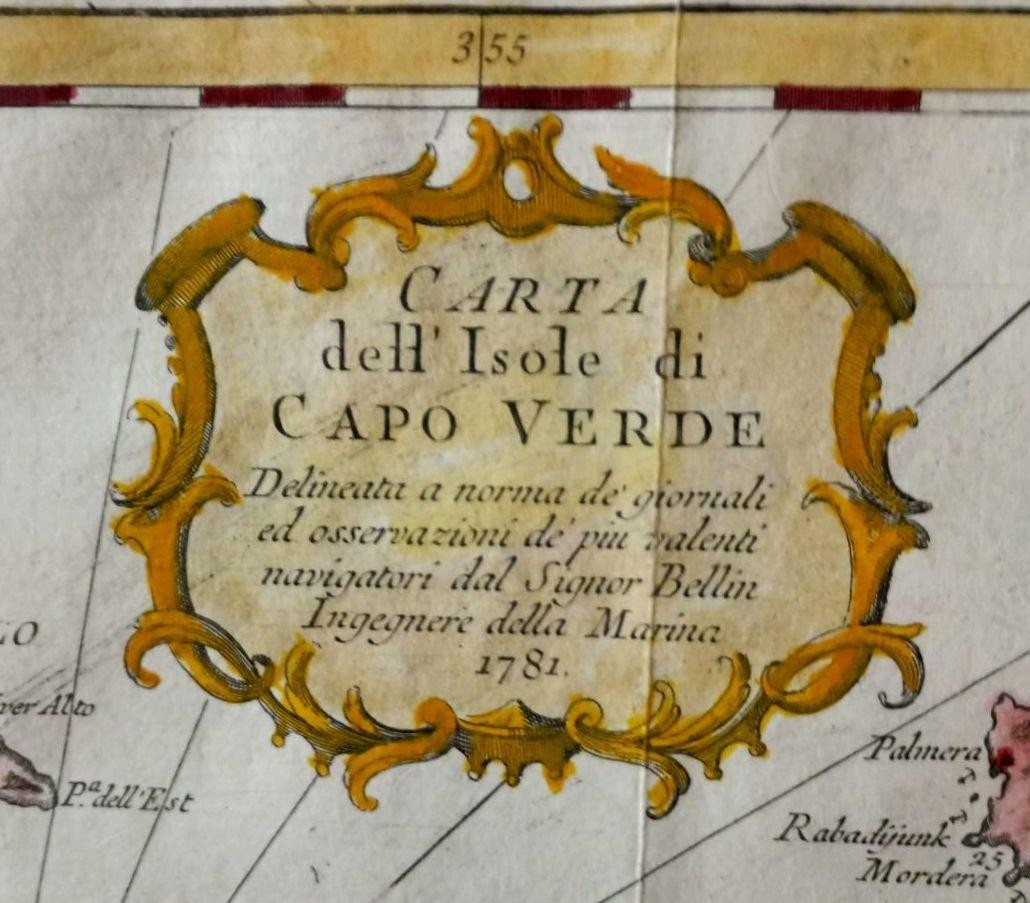 355
CARTA
dell' Isole di
CAPO VERDE
Delineata a norma de' giornali
ed osservazioni de' piu valenti
navigatori dal Signor Bellin
Ingegnere della Marina
1781.
LO
ver Alto
P.a dell'Est
Palmera
Rabadijunk
25
Mordera